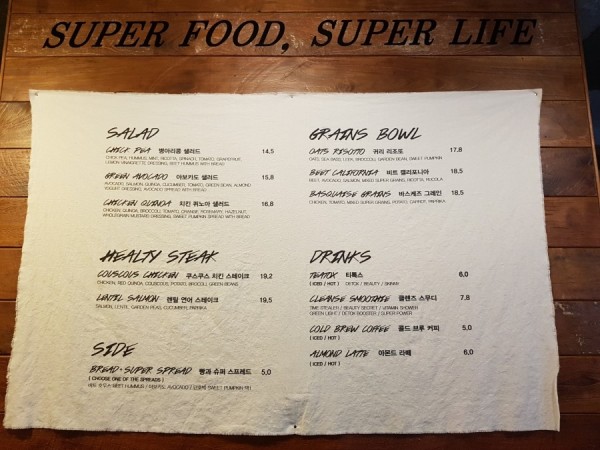 SUPER FOOD, SUPER LIFE
SALAD
CHICK PEA 병아리콩 샐러드 14,5
CHICK PEA, HUMMUS, MINT, RICOTTA, SPINACH, TOMATO, GRAPEFRUIT,
LEMON VINAIGRETTE DRESSING, BEET HUMMUS WITH BREAD
GREEN AVOCADO 아보카도 샐러드 15,8
AVOCADO, SALMON, QUINOA, CUCUMBER, TOMATO, GREEN BEAN, ALMOND
YOGURT DRESSING, AVOCADO SPREAD WITH BREAD
CHICKEN QUINOA 치킨 퀴노아 샐러드 16,8
CHICKEN, QUINOA, BROCCOLI, TOMATO, ORANGE, ROSEMARY, HAZELNUT,
WHOLEGRAIN MUSTARD DRESSING, SWEET PUMPKIN SPREAD WITH BREAD
HEALTY STEAK
COUSCOUS CHICKEN 쿠스쿠스 치킨 스테이크 19,2
CHICKEN, RED QUINOA, COUSCOUS, POTATO, BROCOLI, GREEN BEANS
LENTIL SALMON 렌틸 연어 스테이크 19,5
SALMON, LENTIL, GARDEN PEAS, CUCUMBER, PAPRIKA
SIDE
BREAD+SUPER SPREAD 빵과 슈퍼 스프레드 5,0
( CHOOSE ONE OF THE SPREADS )
BEET HUMMUS / AVOCADO / SWEET PUMPKIN
GRAINS BOWL
OATS RISOTTO 귀리 리조또 17,8
OATS, SEA BASS, LEEK, BROCCOLI, GARDEN BEAN, SWEET PUMPKIN
BEET CALIFORNIA 비트 캘리포니아 18,5
BEET, AVOCADO, SALMON, MIXED SUPER GRAINS, RICOTTA, RUCOLA
BASQUAISE GRAINS 바스케즈 그레인 18,5
CHICKEN, TOMATO, MIXED SUPER GRAINS, POTATO, CARROT, PAPRIKA
DRINKS
TEATOX 티톡스 6,0
( ICED / HOT ) DETOX / BEAUTY / SHRINK
CLEANSE SMOOTHIE 클렌즈 스무디 7,8
TIME STEALER / BEAUTY SECRET / VITAMIN SHOWER
GREEN LIGHT / DETOX BOOSTER / SUPER POWER
COLD BREW COFFEE 콜드 브루 커피 5,0
( ICED / HOT )
ALMOND LATTE 아몬드 라떼 6,0
( ICED / HOT )